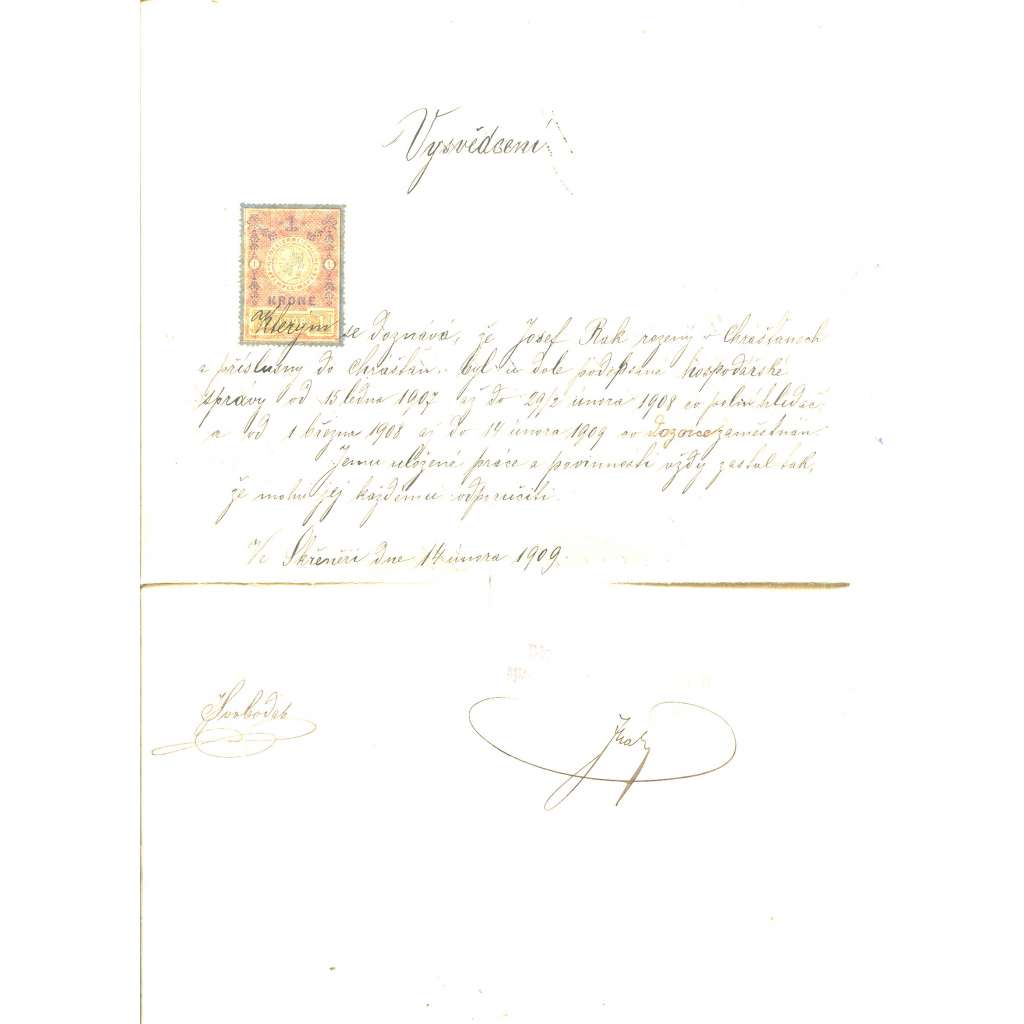 Vysvědcení
1
1 1
KRONE
Kterým se doznává, že Josef Rak rozený v Chrášťanech
a příslušný do Chrášťan. byl u dole podepsané hospodářské
správy od 15 ledna 1907 až do 29/2 února 1908 co polní hlídač,
a od 1 března 1908 až do 14 února 1909 co Dozorce zaměstnán.
Jemu uložené práce a povinnosti vždy zastal tak,
že mohu jej každému odporučiti.
Ve Skřeněři dne 14 února 1909.
Svoboda